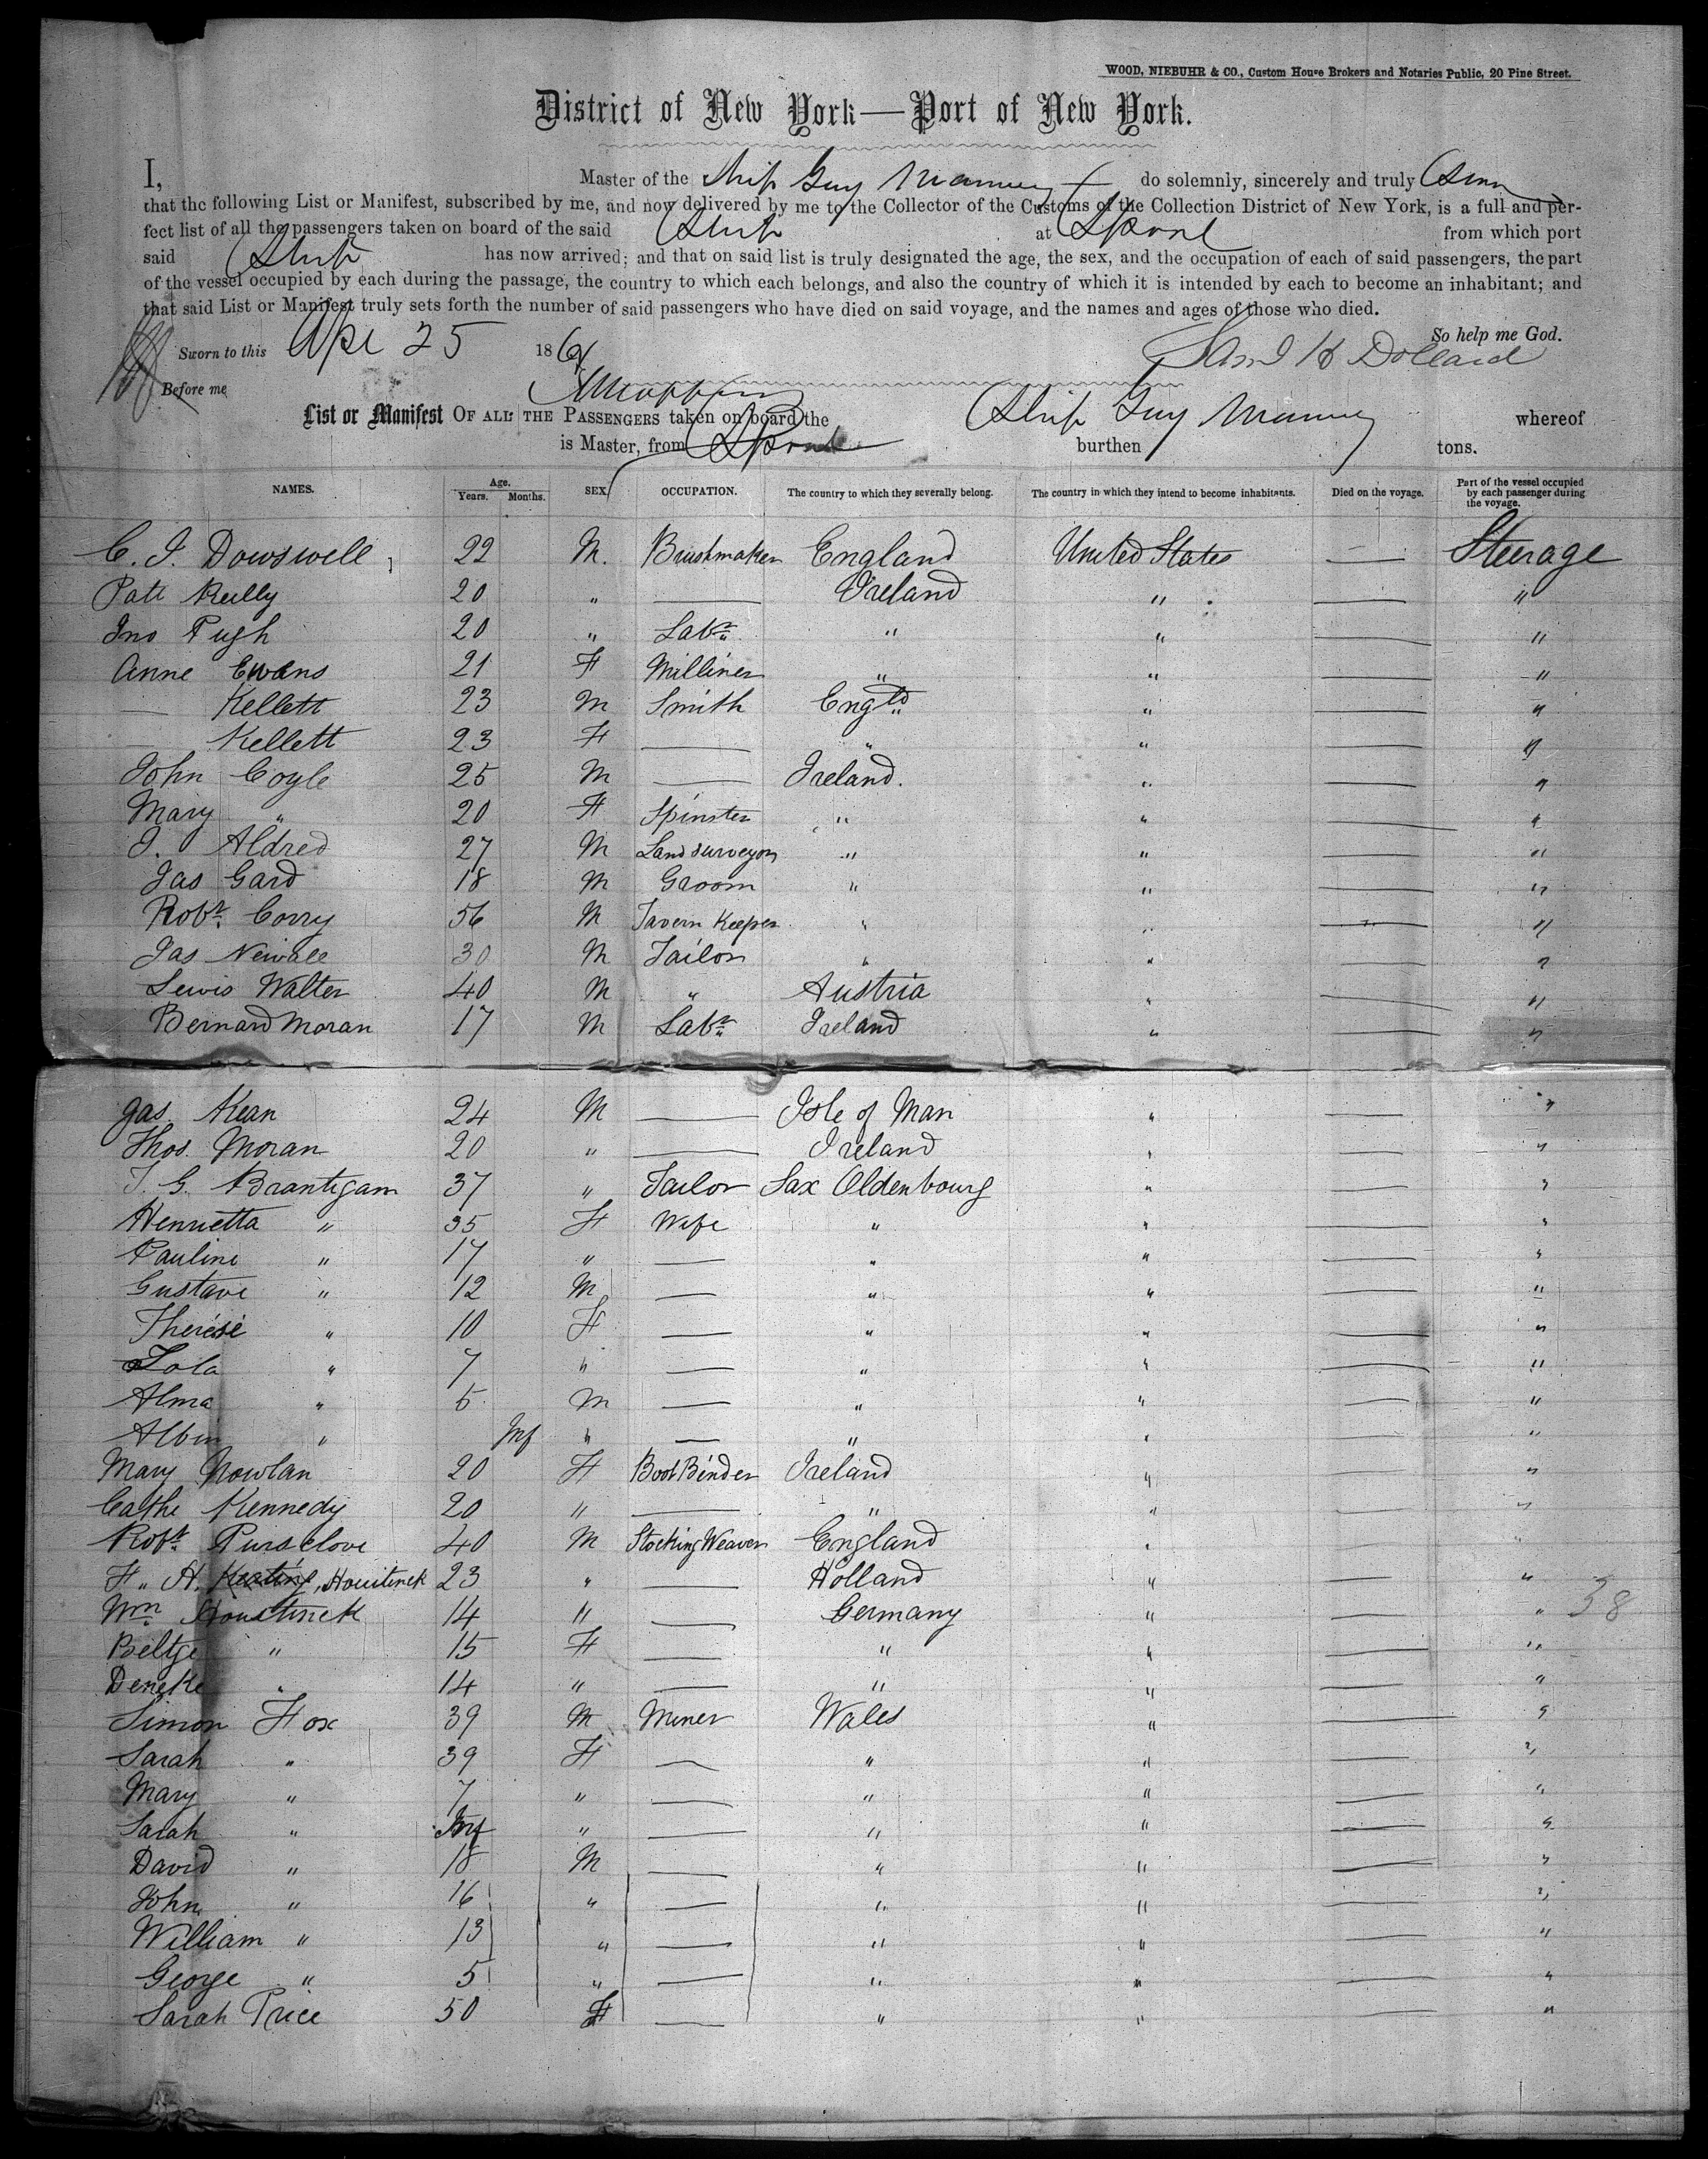 WOOD, NIEBUHR & CO., Custom House Brokers and Notaries Public, 20 Pine Street.
District of New York—Port of New York.
I, Master of the Ship Guy Mannering do solemnly, sincerely and truly
that the following List or Manifest, subscribed by me, and now delivered by me to the Collector of the Customs of the Collection District of New York, is a full and per-
fect list of all the passengers taken on board of the said Ship at Lpool from which port
said Ship has now arrived; and that on said list is truly designated the age, the sex, and the occupation of each of said passengers, the part
of the vessel occupied by each during the passage, the country to which each belongs, and also the country of which it is intended by each to become an inhabitant; and
that said List or Manifest truly sets forth the number of said passengers who have died on said voyage, and the names and ages of those who died.
So help me God.
Sworn to this Apl 25 186 Dollard
Before me
List or Manifest OF ALL THE PASSENGERS taken on board the Ship Guy Mannering whereof
is Master, from Lpool burthen tons.
NAMES. Age. Years. Months. SEX OCCUPATION. The country to which they severally belong. The country in which they intend to become inhabitants. Died on the voyage. Part of the vessel occupied by each passenger during the voyage.
C. J. Dowswell 22 M. Brushmaker England United States — Steerage
Patt Reilly 20 " — Ireland " — "
Jno Pugh 20 " Labr " " — "
Anne Evans 21 F Milliner " " — "
— Kellett 23 M Smith Engld " — "
— Kellett 23 F — " " — "
John Coyle 25 M — Ireland. " — "
Mary " 20 F Spinster " " — "
J. Aldred 27 M Land surveyor " " — "
Jas Gard 18 M Groom " " — "
Robt. Corry 56 M Tavern Keeper " " — "
Jas Newall 30 M Tailor " " — "
Lewis Walter 40 M " Austria " — "
Bernard Moran 17 M Labr Ireland " — "
Jas. Kean 24 M — Isle of Man " — "
Thos. Moran 20 " — Ireland " — "
J. G. Brantigam 37 " Tailor Sax Oldenbourg " — "
Henrietta " 35 F Wife " " — "
Pauline " 17 " — " " — "
Gustave " 12 M — " " — "
Therésé " 10 F — " " — "
Lola " 7 " — " " — "
Alma " 5 M — " " — "
Albin " Inf " — " " — "
Mary Nowlan 20 F Boot Binder Ireland " — "
Cathe Kennedy 20 " — " " — "
Robt. Pursclove 40 M Stocking Weaver England " — "
F. H. Keating, Houstinck 23 " — Holland " — "
Wm Houstinck 14 " — Germany " — " 38
Beltje " 15 F — " " — "
Deneke " 14 " — " " — "
Simon Fox 39 M Miner Wales " — "
Sarah " 39 F — " " — "
Mary " 7 " — " " — "
Sarah " Inf " — " " — "
David " 18 M — " " — "
John " 16 " — " " — "
William " 13 " — " " — "
George " 5 " — " " — "
Sarah Price 50 F — " " — "